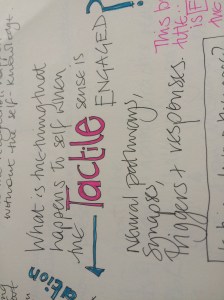 without the self-knowledge
What is the thing that
happens to self when
the Tactile sense is
ENGAGED?
ation
Neural pathways,
Synapses,
triggers + responses.
This b